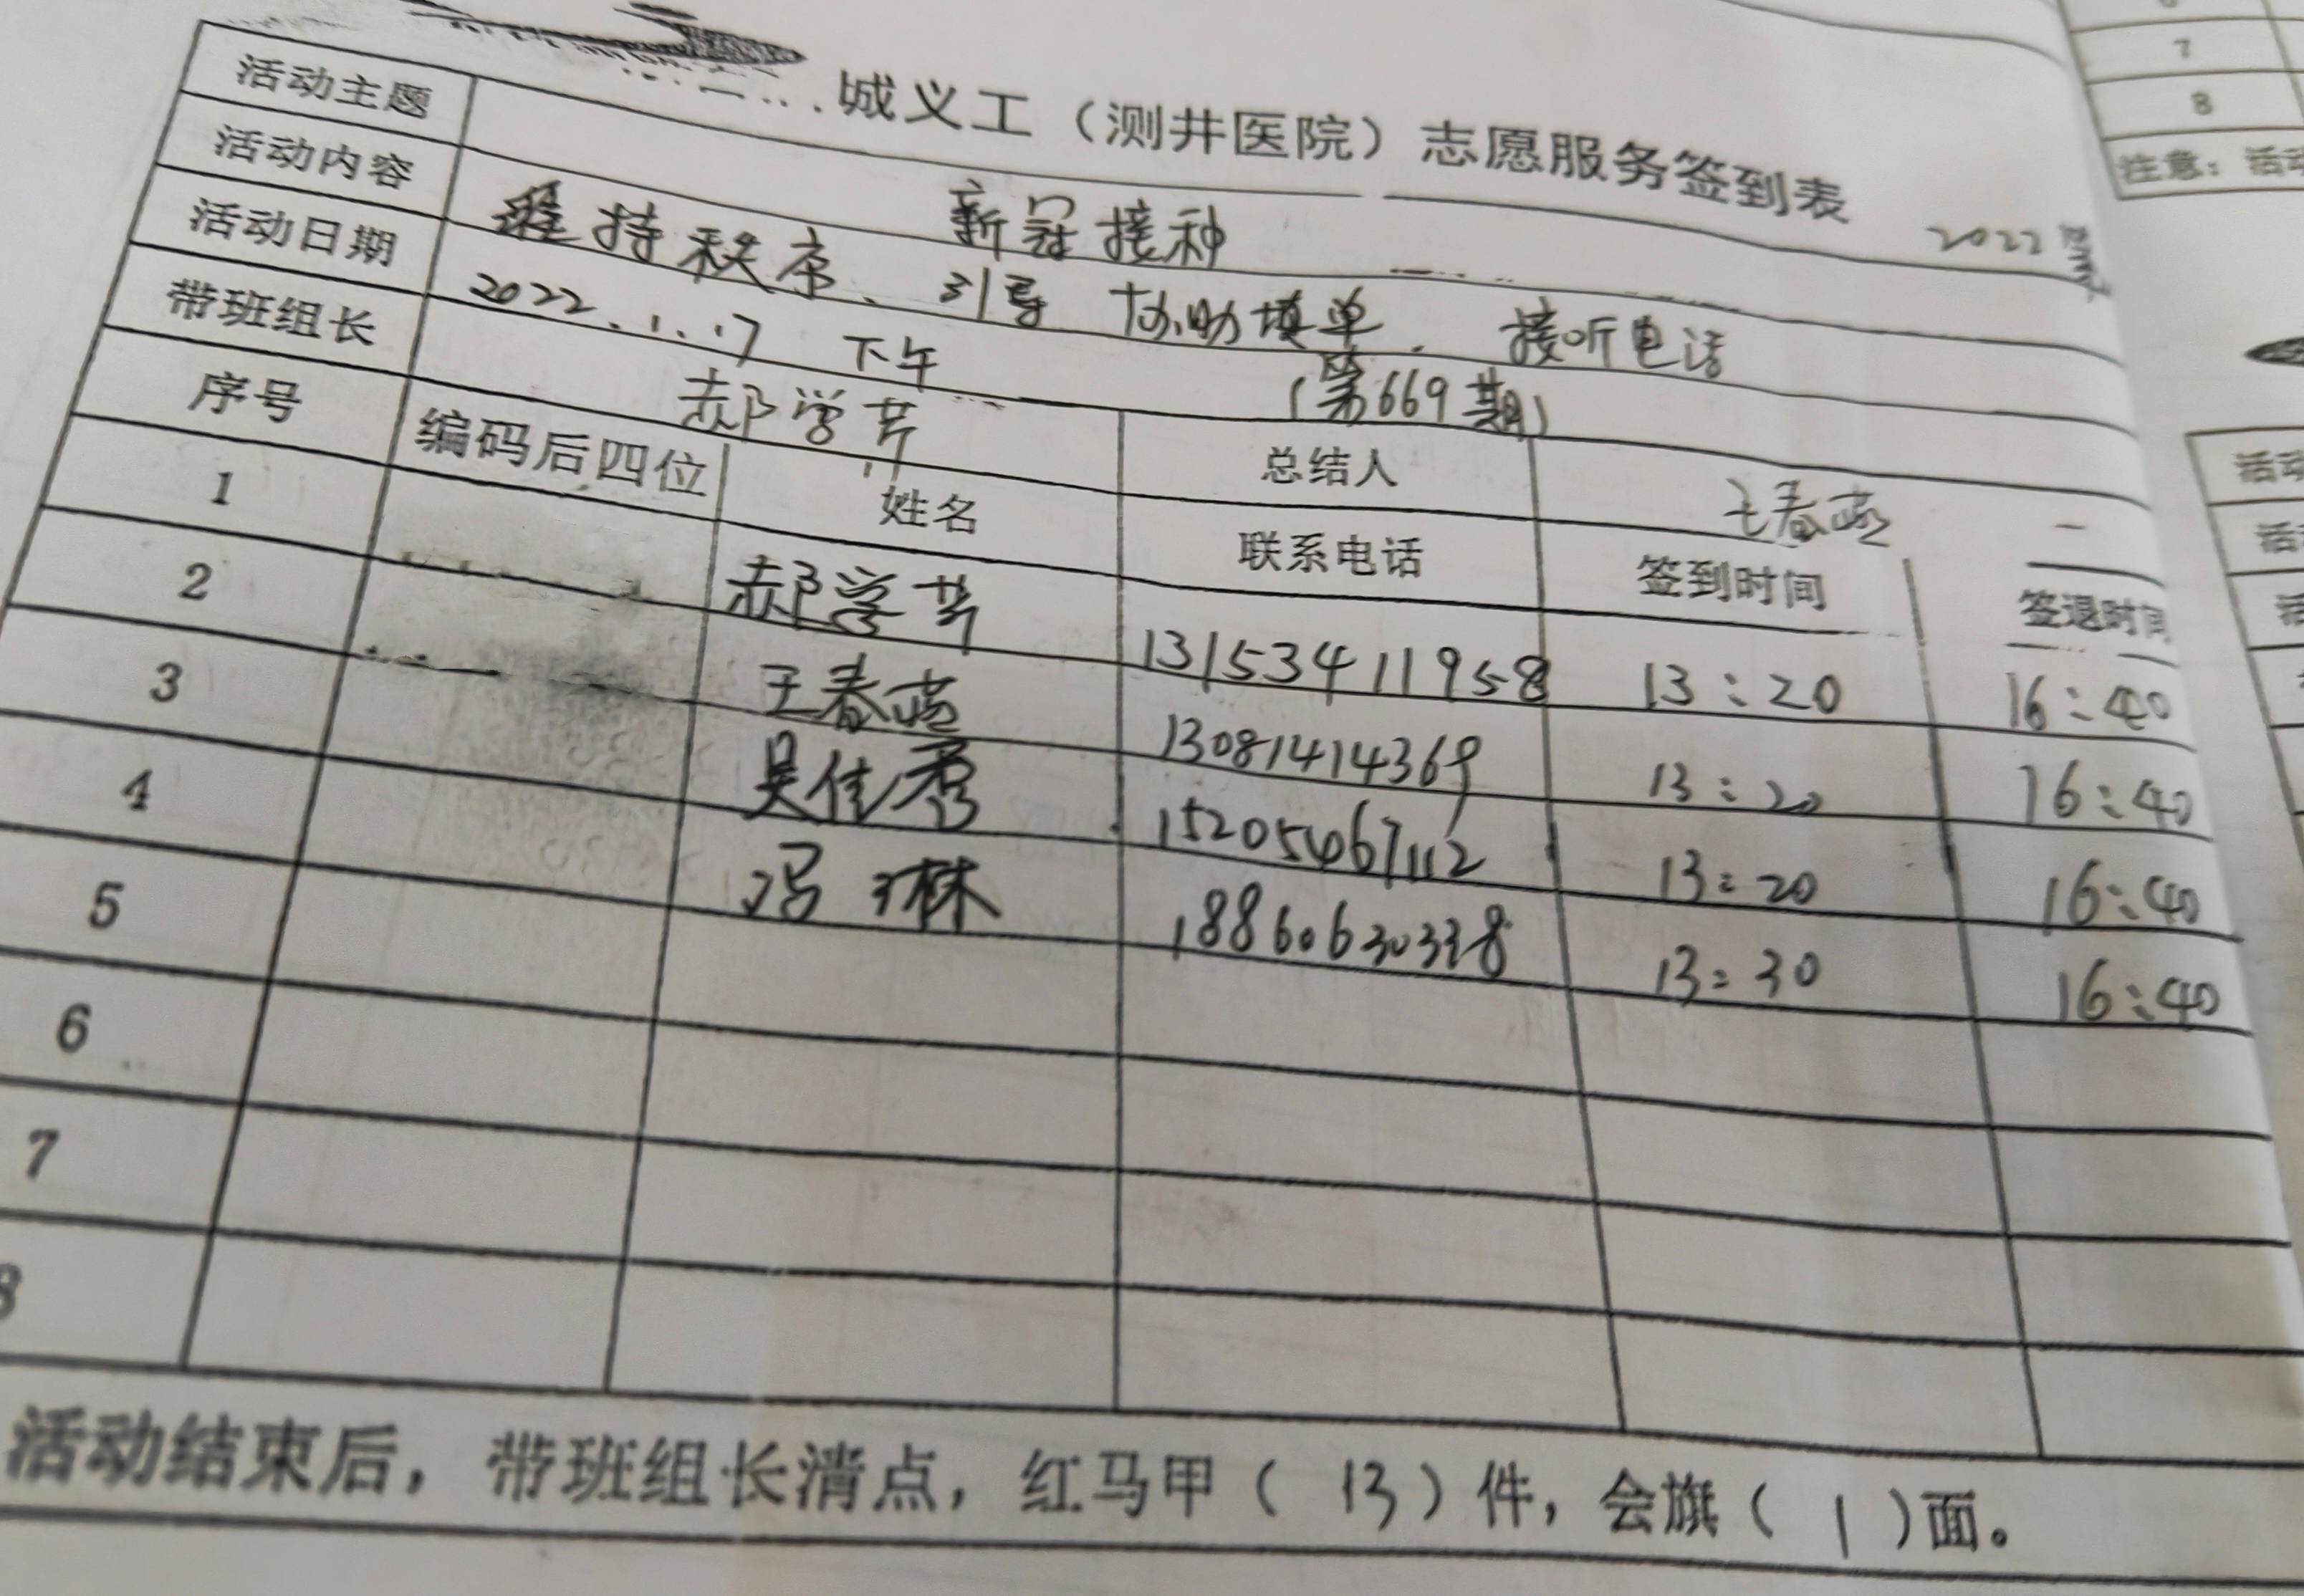 城义工（测井医院）志愿服务签到表
2022
活动主题 新冠接种
活动内容 维持秩序、引导 协助填单、接听电话
活动日期 2022.1.17 下午 （第669期）
带班组长 郝学芹 总结人 王春燕
序号 编码后四位 姓名 联系电话 签到时间 签退时间
1 郝学芹 13153411958 13:20 16:40
2 王春燕 13081414369 13:20 16:40
3 吴佳秀 15205467112 13:20 16:40
4 冯琳 18860630338 13:30 16:40
5
6
7
8
活动结束后，带班组长清点，红马甲（ 13 ）件，会旗（ 1 ）面。
7
8
注意：活动
活动